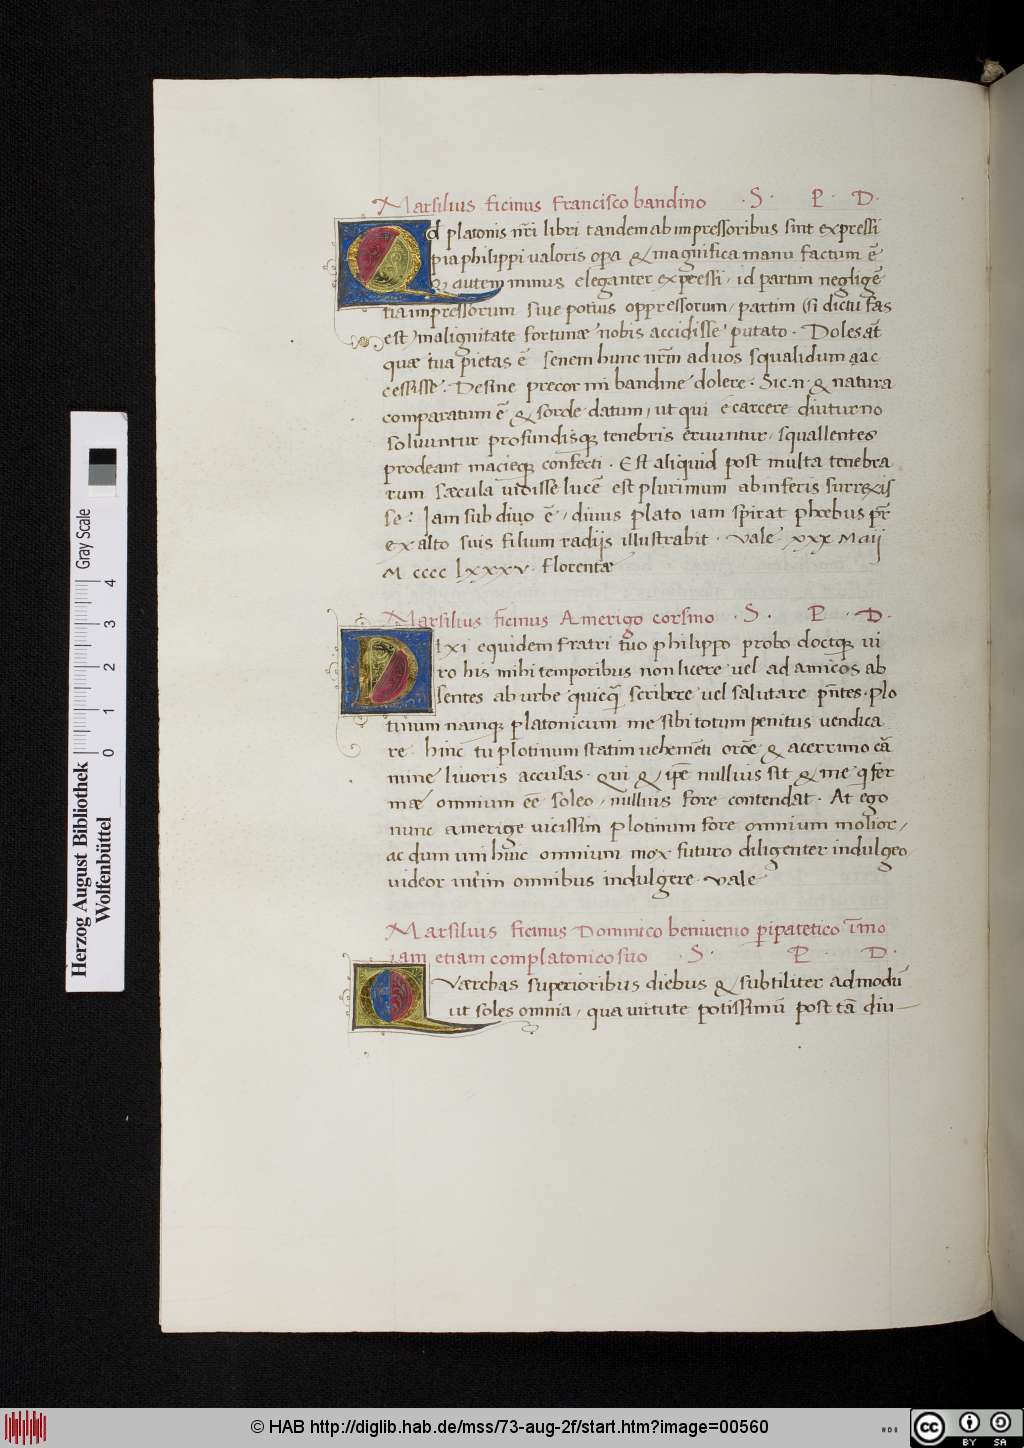 Marsilius ficinus Francisco bandino · S · P · D ·
Qd platonis nr̄i libri tandem ab impressoribus sint expressi
pia philippi valoris opa & magnifica manu factum ē
Q autem minus eleganter expressi / id partim negligē
tia impressorum siue potius oppressorum / partim (si dictu fas
est) malignitate fortunæ nobis accidisse putato · Doles at̄
quæ tua pietas ē senem hunc nr̄m ad uos squalidum ac
cessisse · Desine precor mi bandine dolere · Sic n. & natura
comparatum ē & sorde datum / ut qui e carcere diuturno
soluuntur profundisq; tenebris eruuntur / squallentes
prodeant macieq; confecti · Est aliquid post multa tenebra
rum sæcula uidisse lucē est plurimum ab inferis surrexis
se : Iam sub diuo ē / diuus plato iam spirat phœbus pr̄
ex alto suis filium radijs illustrabit · Vale xxx Maij
M cccc lxxxv · Florentæ
Marsilius ficinus Amerigo corsino · S · P · D ·
Dixi equidem fratri tuo philippo probo doctoq; ui
ro his mihi temporibus non licere uel ad amicos ab
sentes ab urbe quicq̄ scribere uel salutare pn̄tes · Plo
tinum namq; platonicum me sibi totum penitus uendica
re hinc tu plotinum statim uehemēti orōe & acerrimo cā
mine liuoris accusas · qui & ip̄e nullius sit & me q fer
mæ omnium eē soleo / nullius fore contendat · At ego
nunc amerige uicissim plotinum fore omnium molior /
ac dum uni huic omnium mox futuro diligenter indulgeo
uideor int̄im omnibus indulgere · Vale
Marsilius ficinus Dominico beniuenio pipatetico īmo
iam etiam complatonico suo · S · P · D ·
Quærebas superioribus diebus & subtiliter admodū
ut soles omnia / qua uirtute potissimū post tā diu-
Herzog August Bibliothek
Wolfenbüttel
0 1 2 3 4
Gray Scale
© HAB http://diglib.hab.de/mss/73-aug-2f/start.htm?image=00560
cc BY SA